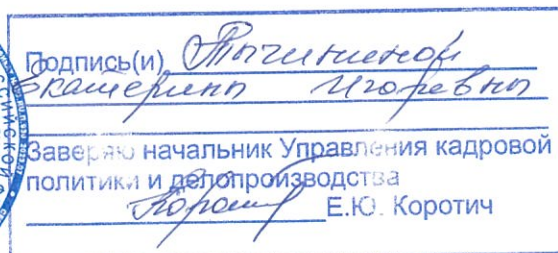 Подпись(и) Тычининой
Екатерины Игоревны
Заверяю начальник Управления кадровой
политики и делопроизводства
Е.Ю. Коротич